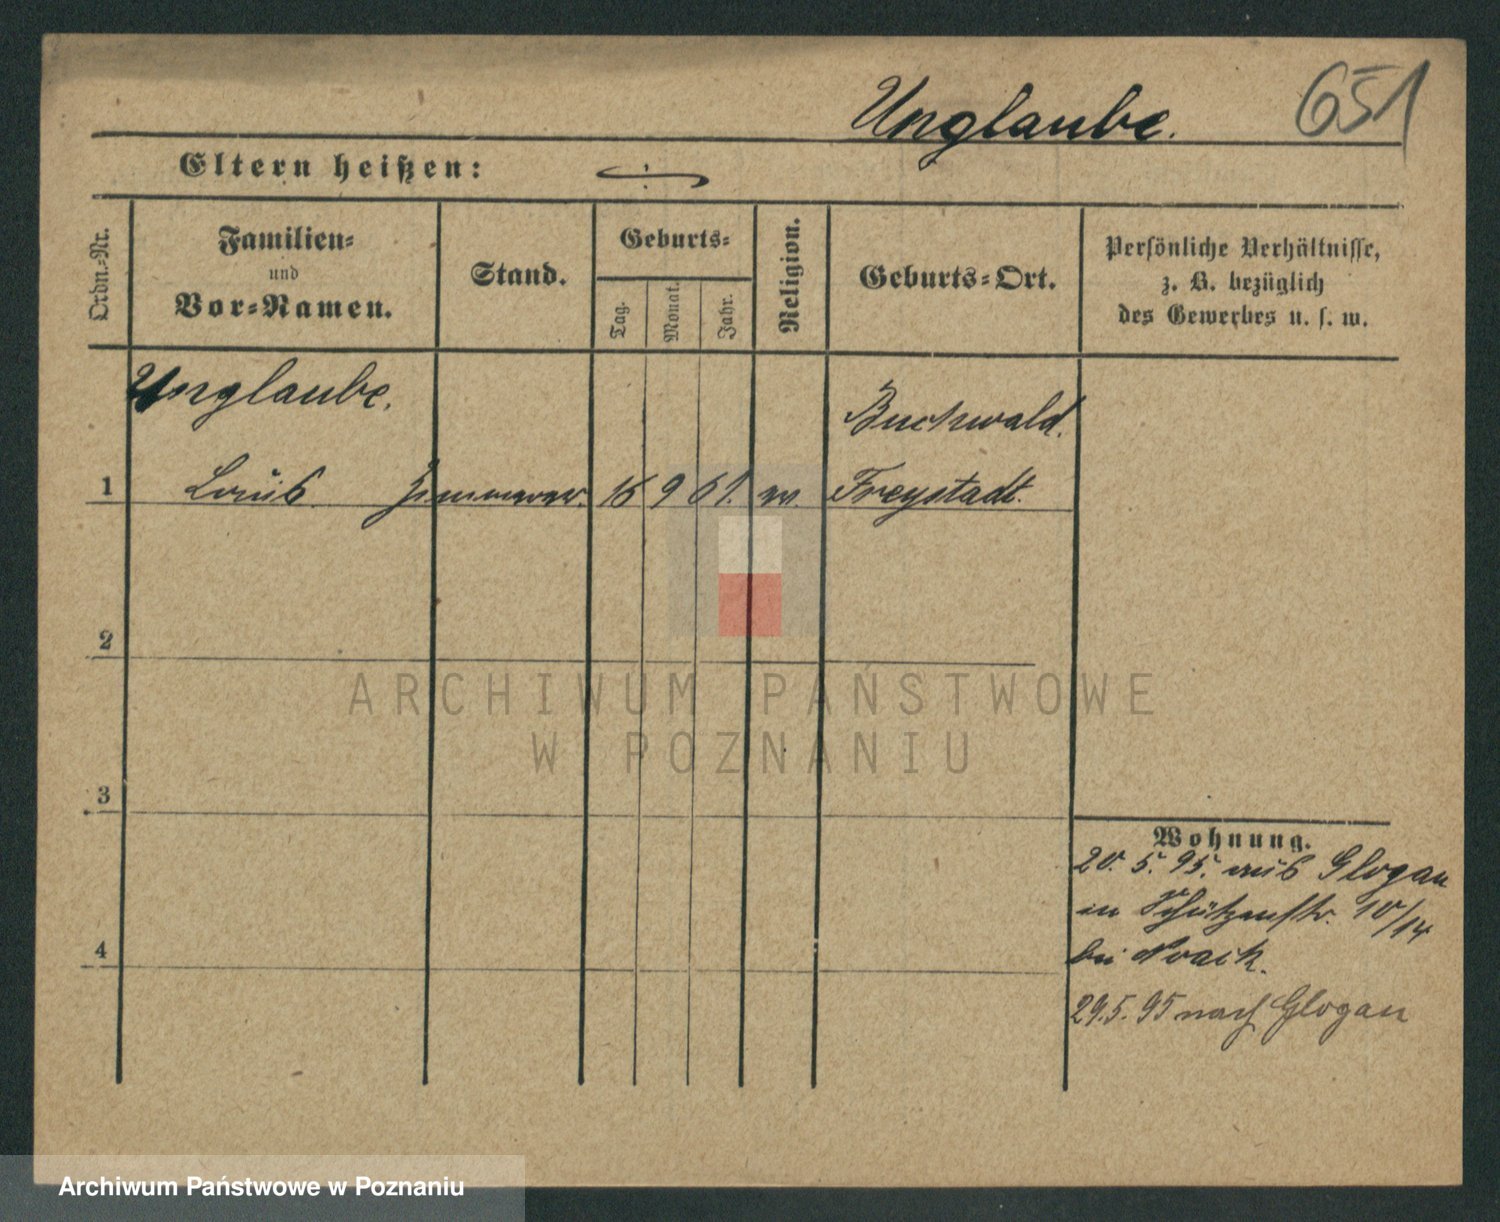 Unglaube. 651
Eltern heißen:
Ordn.-Nr.
Familien-
und
Vor-Namen.
Stand.
Geburts-
Tag.
Monat.
Jahr.
Religion.
Geburts-Ort.
Persönliche Verhältnisse,
z. B. bezüglich
des Gewerbes u. s. w.
Unglaube.
Buchwald.
1 Louis Zimmerer. 16 9 61. ev. Freystadt.
2
ARCHIWUM PAŃSTWOWE
W POZNANIU
3
Wohnung.
20. 5. 95. aus Glogau
in Schützenstr. 10/14
bei Noack.
4
29.5.95 nach Glogau
Archiwum Państwowe w Poznaniu